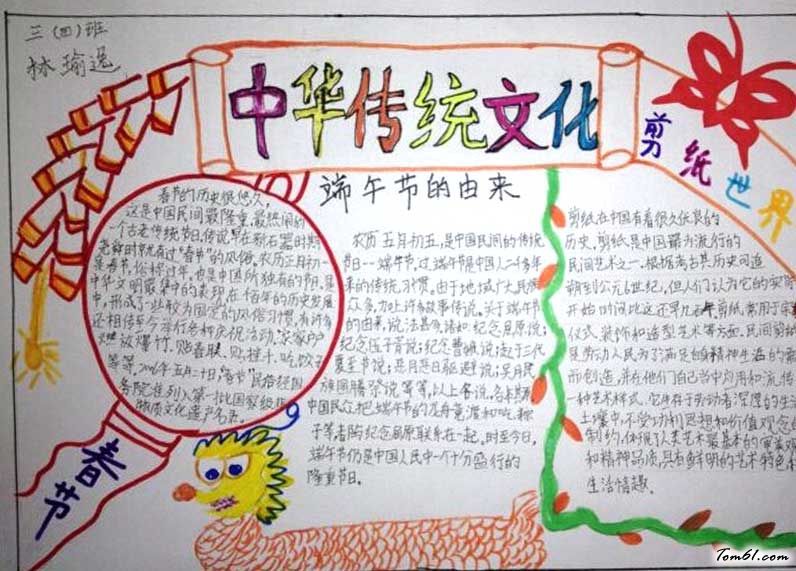 三(四)班
林瑜逸
中华传统文化
剪纸世界
端午节的由来
春节的历史很悠久,
这是中国民间最隆重最热闹的
一个古老传统节日.传说,早在新石器时期
尧舜时就有过"春节"的风俗.农历正月初一
是春节,俗称过年,也是中国所独有的节日.是
中华文明最集中的表现,在俗年的历史发展
中,形成了一些较为固定的风俗习惯,有许多
还相传至今.举行各种庆祝活动,家家户户
放爆竹.贴春联.吃饺子
等等.2006年5月20日,"春节"民俗经国
务院批列入第一批国家级
物质文化遗产名录.
春节
农历五月初五,是中国民间的传统
节日--端午节,过端午节是中国人二千多年
来的传统习惯,由于地域广大,民族
众多,加上许多故事传说.关于端午节
的由来,说法甚多,诸如:纪念屈原说;
纪念伍子胥说;纪念曹娥说;起于三代
夏至节说;恶月恶日驱避说;吴月民
族图腾祭说等等,以上各说,各本其源
中国民众把端午节的龙舟竞渡和吃粽
子等,都与纪念屈原联系在一起,时至今日,
端午节仍是中国人民中一个十分盛行的
隆重节日.
剪纸在中国有着很久优良的
历史,剪纸是中国最为流行的
民间艺术之一.根据考古其历史可追
朔到公元6世纪,但人们认为它的实际
开始时间比这还早几百年.剪纸常用于宗
仪式,装饰和造型艺术等方面.民间剪纸
是劳动人民为了满足自身精神生活的需
而创造,并在他们自己当中应用和流传
一种艺术样式.它生存于劳动者深厚的生活
土壤中,不受功利思想和价值观念的
制约,体现了人类艺术最基本的审美观
和精神品质,具有鲜明的艺术特色和
生活情趣.
Tom61.com